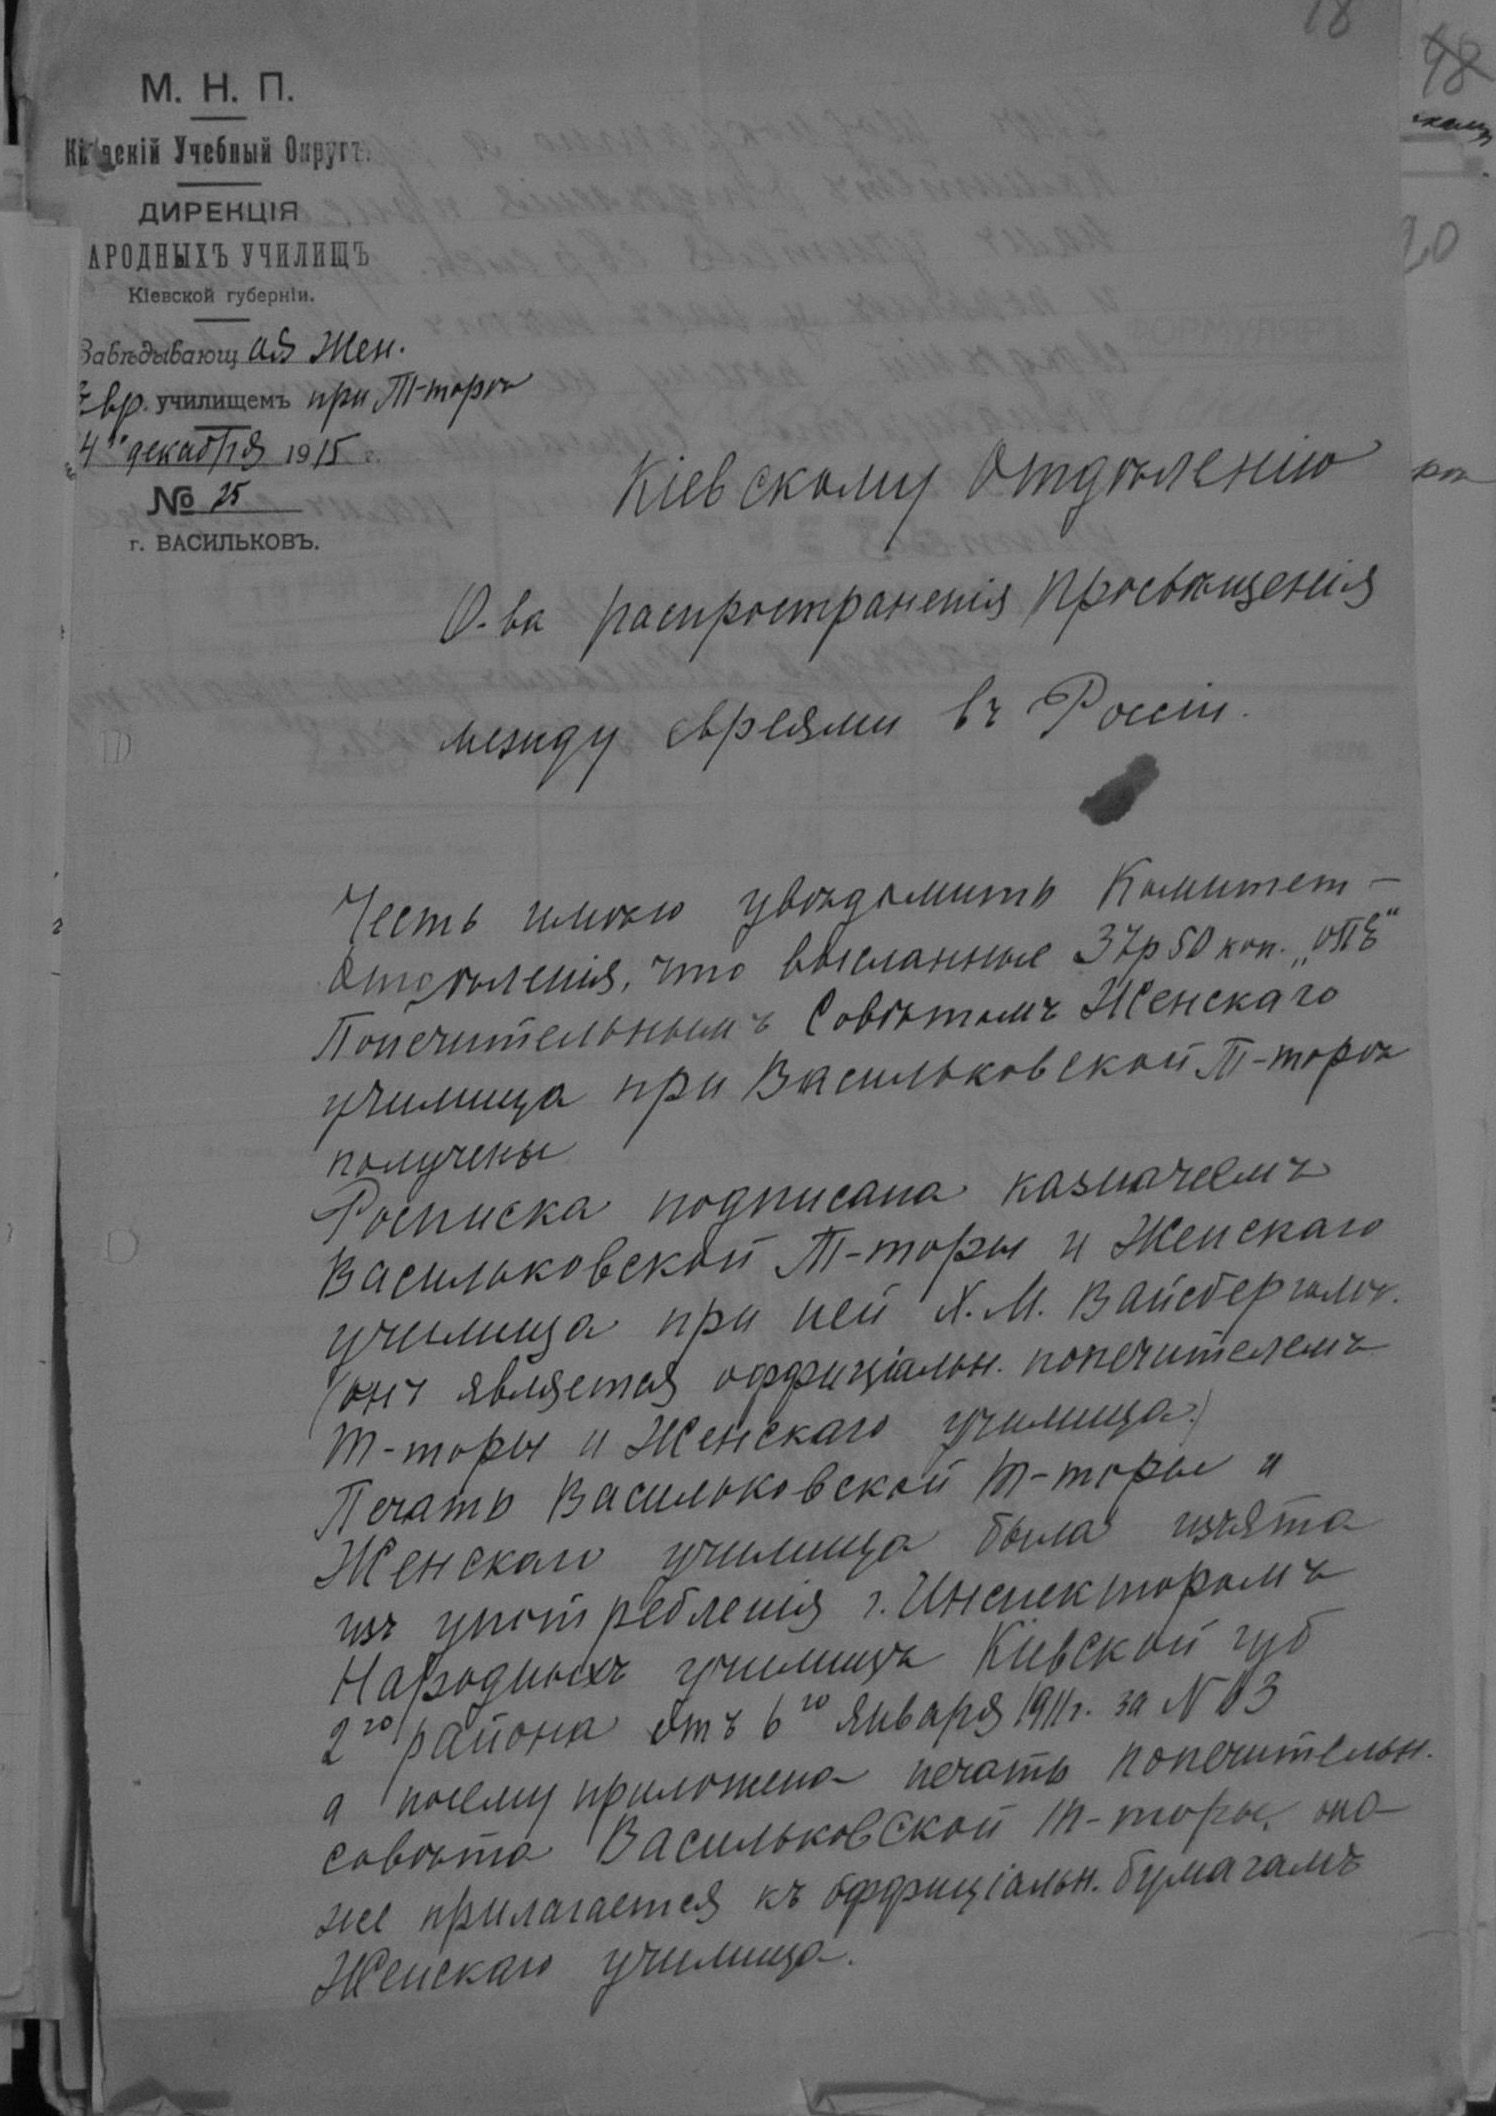 18
48
М. Н. П.
Кіевскій Учебный Округъ.
ДИРЕКЦІЯ
АРОДНЫХЪ УЧИЛИЩЪ
Кіевской губерніи.
Завѣдывающ ая Жен.
Евр. училищемъ при Т-торѣ
4го декабря 1915 г.
№ 25
г. ВАСИЛЬКОВЪ.
20
Кіевскому Отдѣленію
О-ва распространенія Просвѣщенія
между евреями въ Россіи.
Честь имѣю увѣдомить Комитет
Отдѣленія, что высланные 37р 50 коп. „ОПЕ“
Попечительнымъ Совѣтомъ Женскаго
училища при Васильковской Т-торѣ
получены
Росписка подписана казначеемъ
Васильковской Т-торы и Женскаго
училища при ней Х. М. Вайсбергомъ.
(онъ является оффиціальн. попечителемъ
Т-торы и Женскаго училища.)
Печать Васильковской Т-торы и
Женскаго училища была изъята
изъ употребленія г. Инспекторомъ
Народныхъ училищъ Кіевской губ
2го района отъ 6го января 1911г. за № 03
а посему приложена печать попечительн.
совѣта Васильковской Т-торы, она
же прилагается къ оффиціальн. бумагамъ
Женскаго училища.